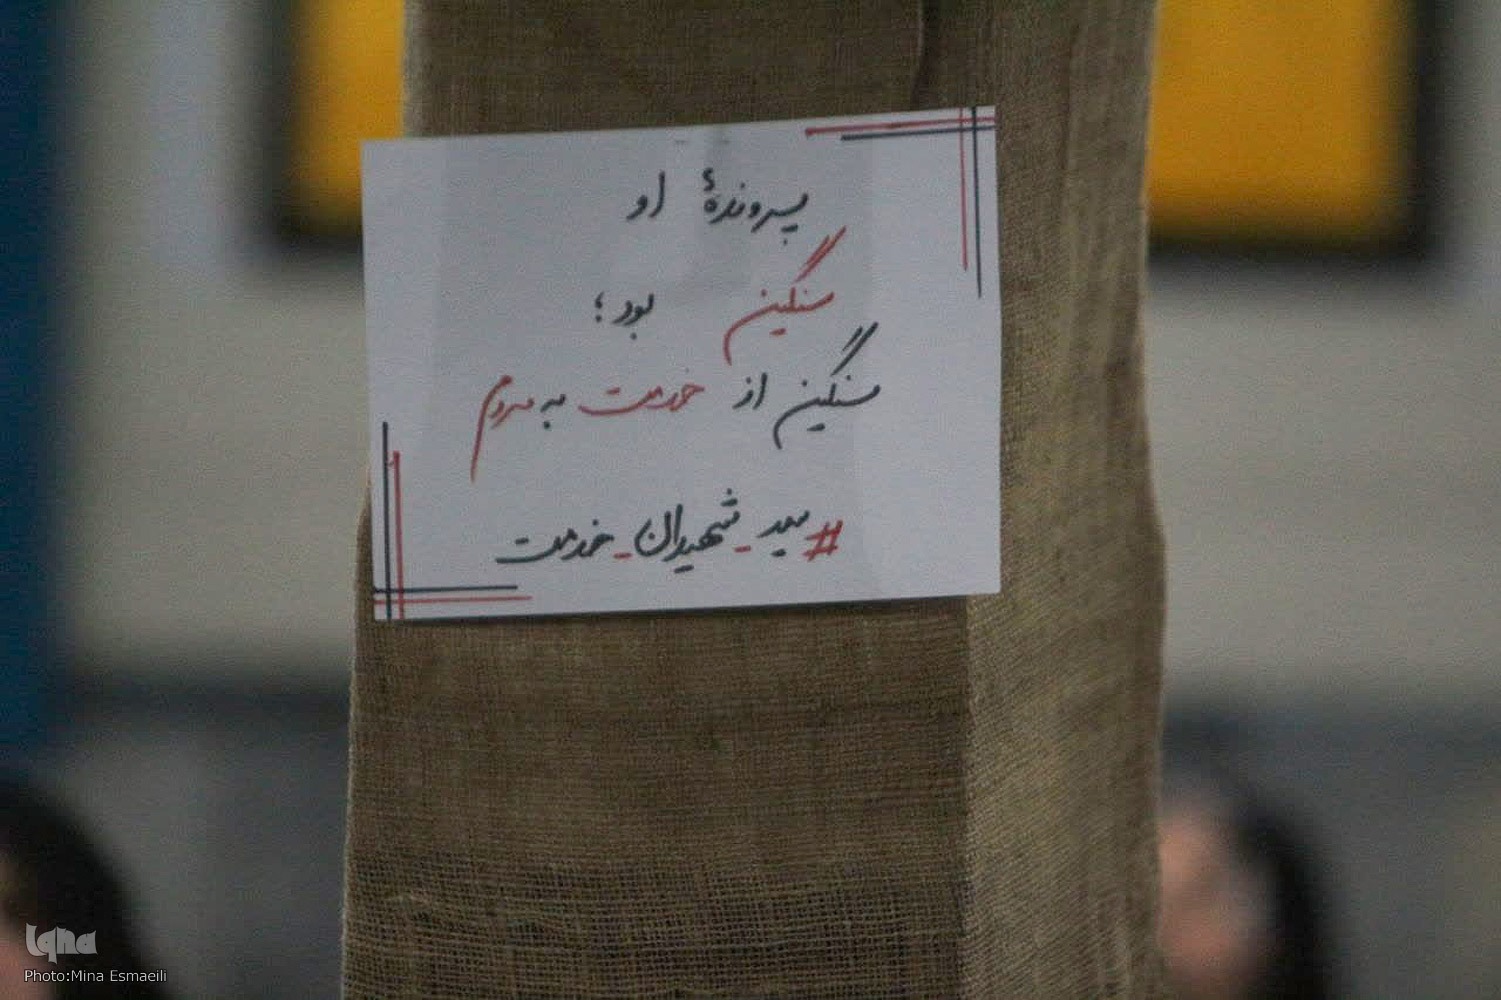 پروندهٔ او
سنگین بود؛
سنگین از خدمت به مردم
#سید_شهیدان_خدمت
Iqna
Photo:Mina Esmaeili